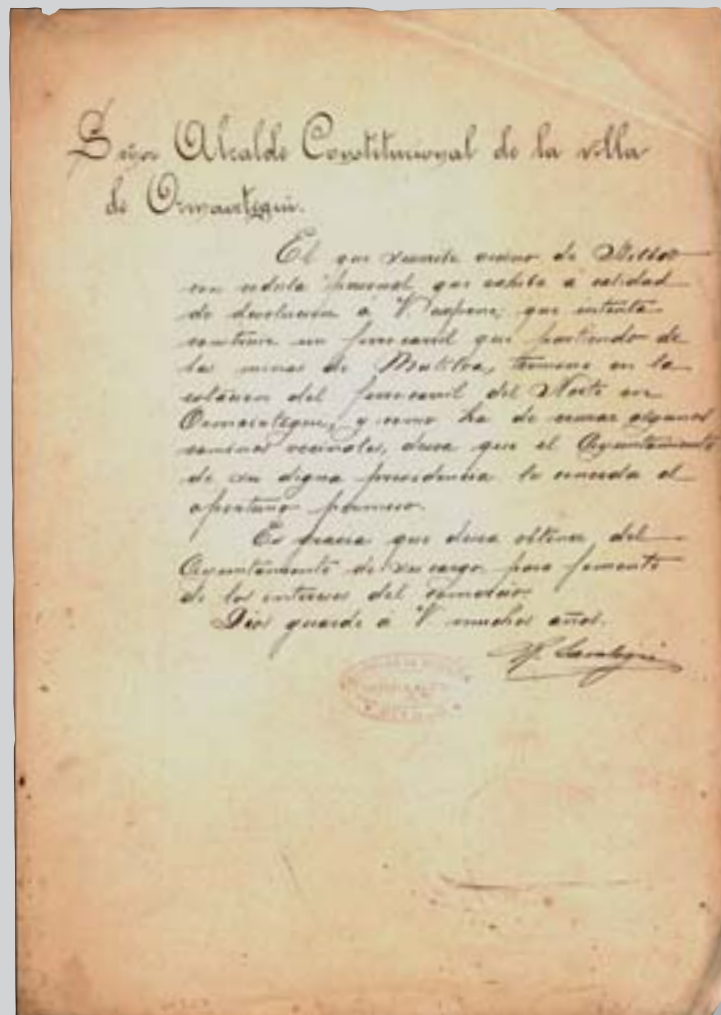 Señor Alcalde Constitucional de la villa
de Ormaiztegui.
El que suscribe vecino de Bilbao
con cédula personal que exhibe a calidad
de devolución á V expone; que intenta
construir un ferrocarril que partiendo de
las minas de Mutiloa, termine en la
estación del ferrocarril del Norte en
Ormaiztegui, y como ha de cruzar algunos
caminos vecinales, desea que el Ayuntamiento
de su digna presidencia le conceda el
oportuno permiso.
Es gracia que desea obtener del
Ayuntamiento de su cargo para fomento
de los intereses del
Dios guarde a V muchos años.